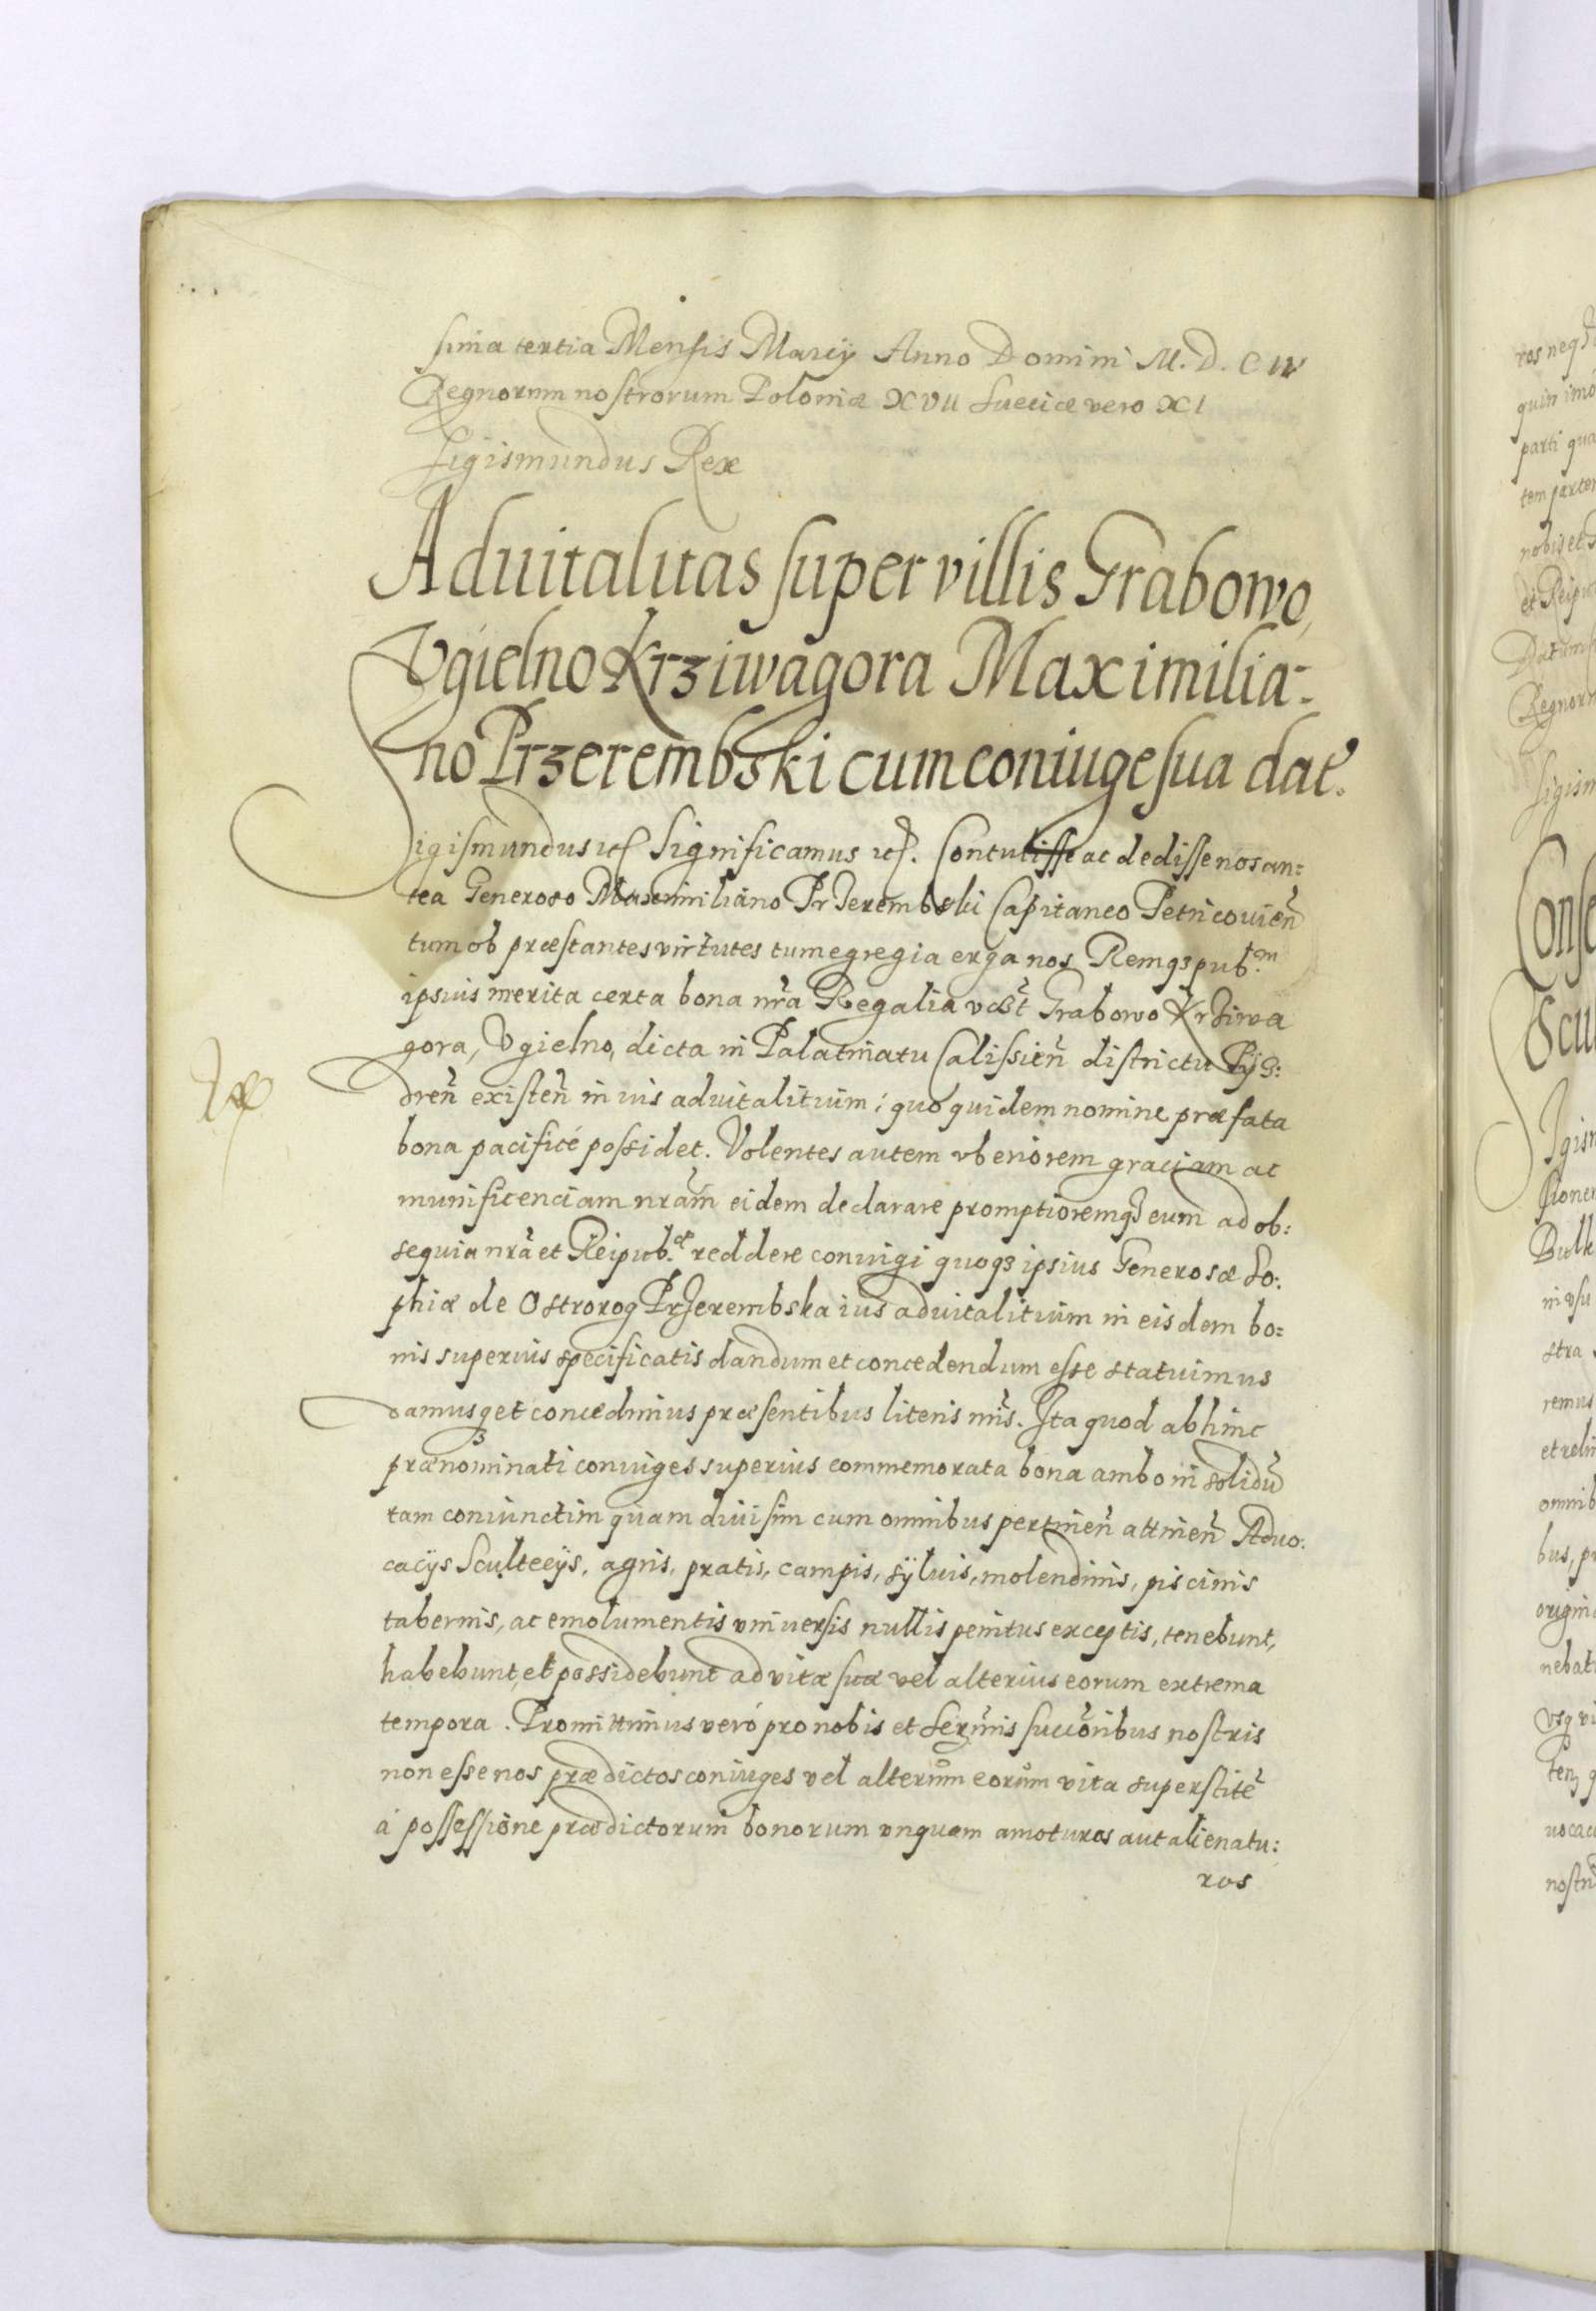 sima tertia Mensis Marcÿ Anno Domini M. D. C IV
Regnorum nostrorum Poloniæ XVII Sueciæ vero XI
Sigismundus Rex
Aduitalitas super villis Grabowo,
Vgielno Krziwagora Maximilia-
no Przerembski cum coniuge sua dat̃.
Sigismundus etc Significamus etc. Contulisse ac dedisse nos an=
tea Generoso Maximiliano Przerembski Capitaneo Petricouień
tum ob præstantes virtutes tum egregia erga nos Remqȝ pub.am
ipsius merita certa bona nr̃a Regalia vdt̃ Grabowo Krziwa
gora, Vgielno, dicta in Palatinatu Calissień districtu Pÿz:
dreñ existeñ in ius aduitalitium; quo quidem nomine præfata
bona pacificé possidet. Volentes autem vberiorem graciam ac
munificenciam nram̃ eidem declarare promptioremqȝ eum ad ob:
sequia nrã et Reipub.æ reddere coniugi quoqȝ ipsius Generosæ So:
phiæ de Ostrorog Przerembska ius aduitalitium in eisdem bo=
nis superius specificatis dandum et concedendum esse statuimus
damusqȝ et concedimus præsentibus literis nr̃is. Ita quod abhinc
prænominati coniuges superius commemorata bona ambo in solidũ
tam coniunctim quam diuisim cum omnibus pertineñ attineñ Aduo:
cacÿs Scultecÿs, agris, pratis, campis, sÿluis, molendinis, piscinis
tabernis, ac emolumentis vniuersis nullis penitus exceptis, tenebunt,
habebunt, et possidebunt ad vitæ suæ vel alterius eorum extrema
tempora. Promittimus veró pro nobis et Serm̃is succõribus nostris
non esse nos prædictos coniuges vel alterum eorum vita superstitẽ
á possessione prædictorum bonorum vnquam amoturos aut alienatu:
ros